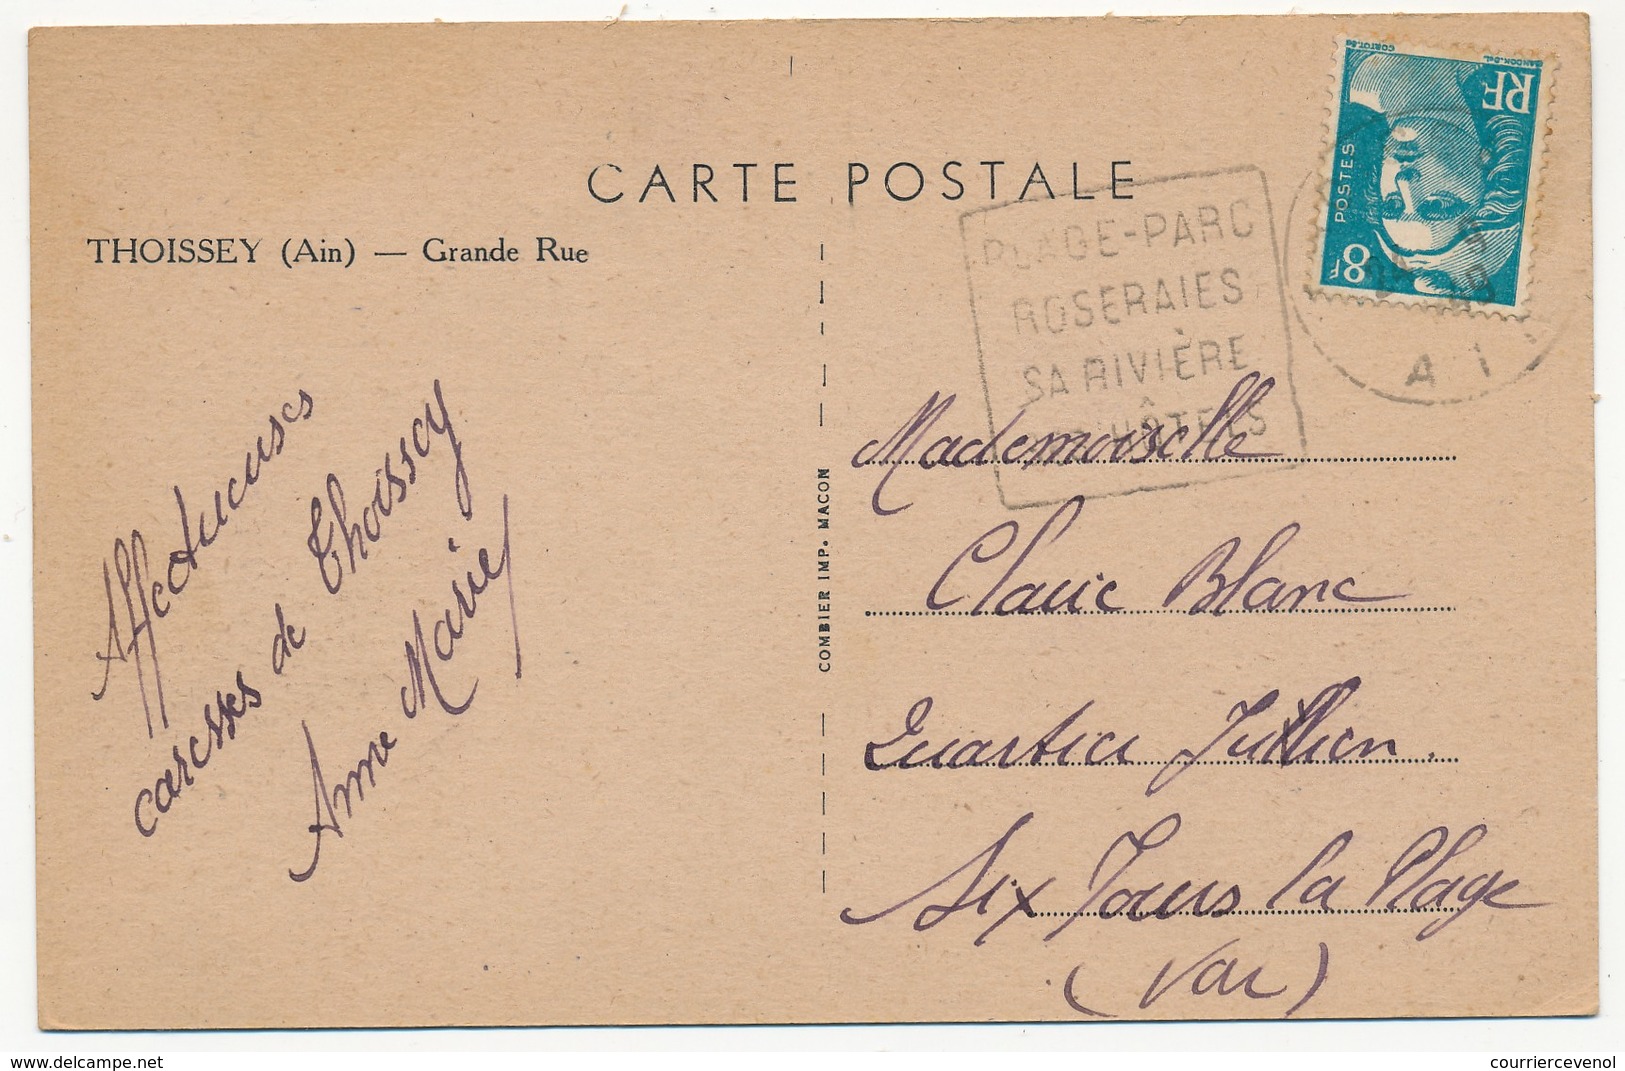 CARTE POSTALE
THOISSEY (Ain) — Grande Rue
PLAGE-PARC
ROSERAIES
SA RIVIÈRE
HÔTELS
RF
POSTES
8F
24
49
AI
Affectueuses
caresses de Thoissey
Anne Marie
COMBIER IMP. MACON
Mademoiselle
Claire Blanc
Quartier Jullien.
Six Fours la Plage
(Var)
www.delcampe.net
courriercevenol